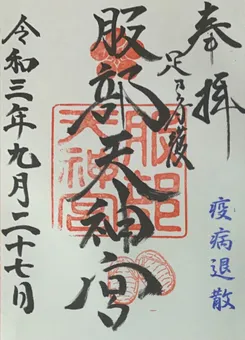 奉拝
足乃守護
疫病退散
服部天神宮
服部天神宮
令和三年九月二十七日